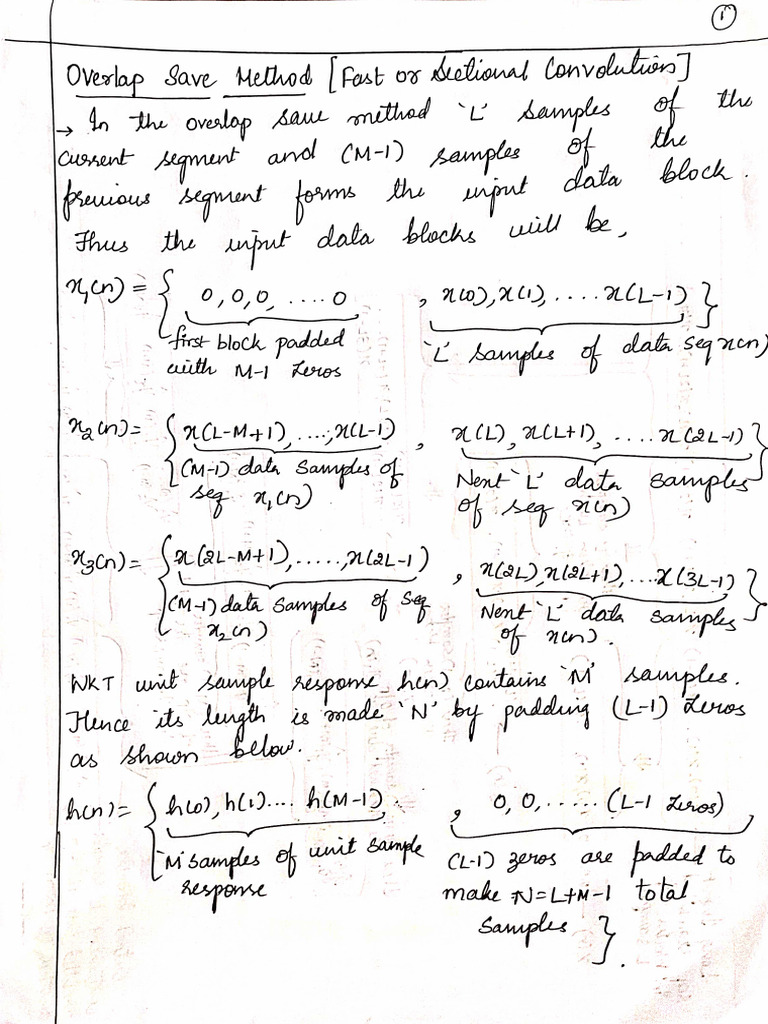 1
Overlap Save Method [Fast or Sectional Convolution]
→ In the overlap save method 'L' samples of the
current segment and (M-1) samples of the
previous segment forms the input data block.
Thus the input data blocks will be,
x₁(n) = { 0, 0, 0, .... 0 , x(0), x(1), .... x(L-1) }
first block padded with M-1 zeros
'L' samples of data seq x(n)
x₂(n) = { x(L-M+1), ...., x(L-1) , x(L), x(L+1), .... x(2L-1) }
(M-1) data samples of seq x₁(n)
Next 'L' data samples of seq x(n)
x₃(n) = { x(2L-M+1), ....., x(2L-1) , x(2L), x(2L+1), ... x(3L-1) }
(M-1) data samples of seq x₂(n)
Next 'L' data samples of x(n).
WKT unit sample response h(n) contains 'M' samples.
Hence its length is made 'N' by padding (L-1) zeros
as shown below.
h(n) = { h(0), h(1) .... h(M-1) , 0, 0, ...... (L-1 zeros) ,
'M' samples of unit sample response
(L-1) zeros are padded to
make N = L+M-1 total
samples }.